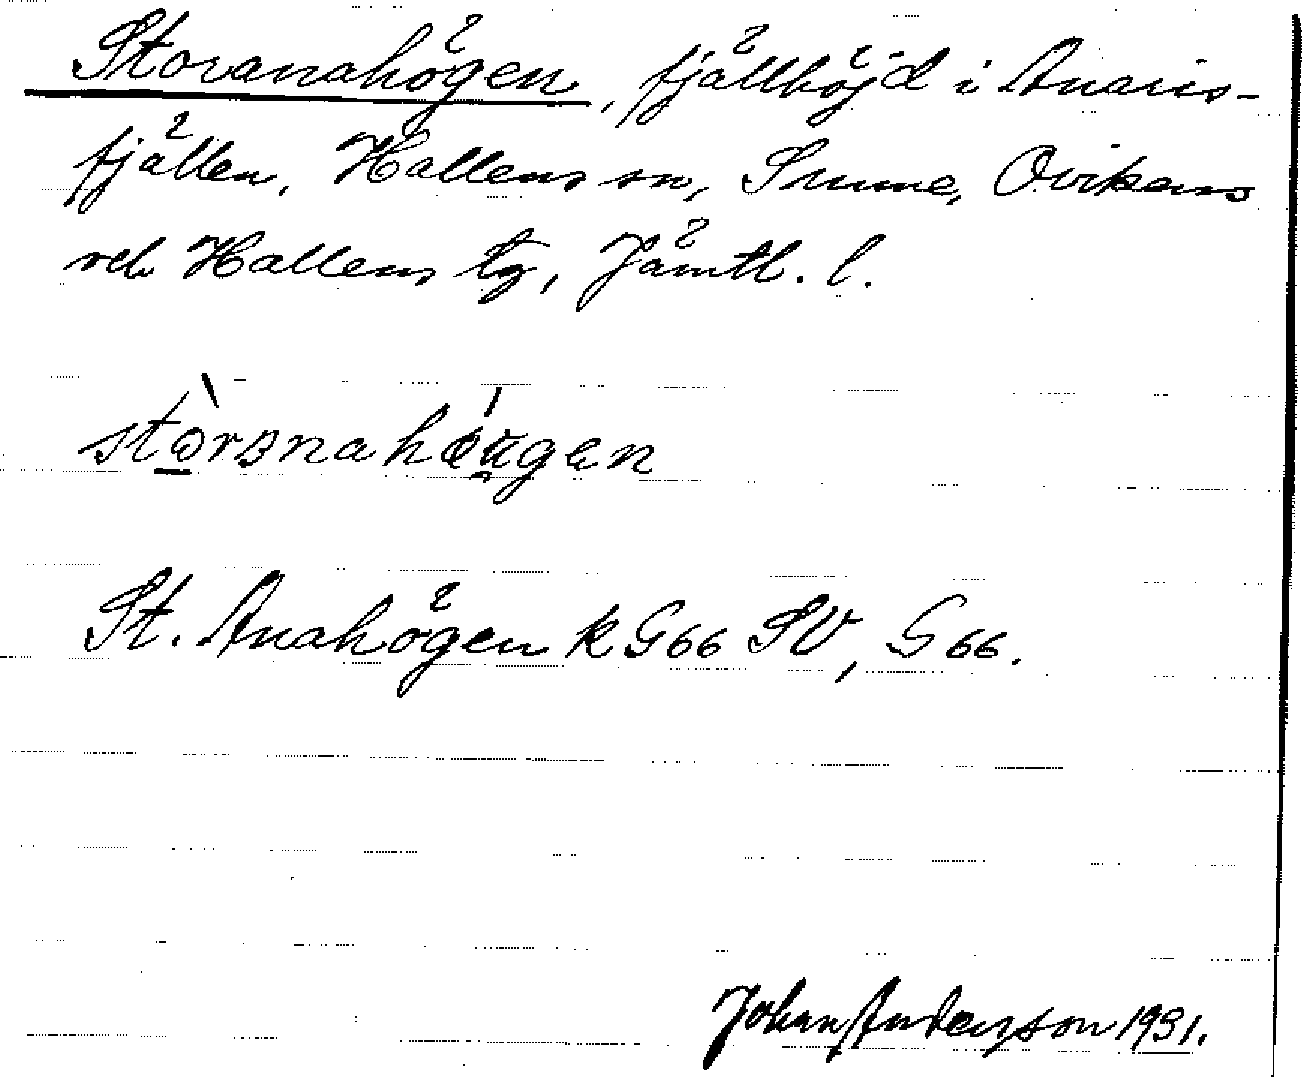 Storanahögen, fjällhöjd i Anaris-
fjällen, Hallens sn, Sunne, Ovikens
och Hallens tg, Jämtl. l.
St. Anahögen k G66 SV, G 66.
Johan Anderson 1931.